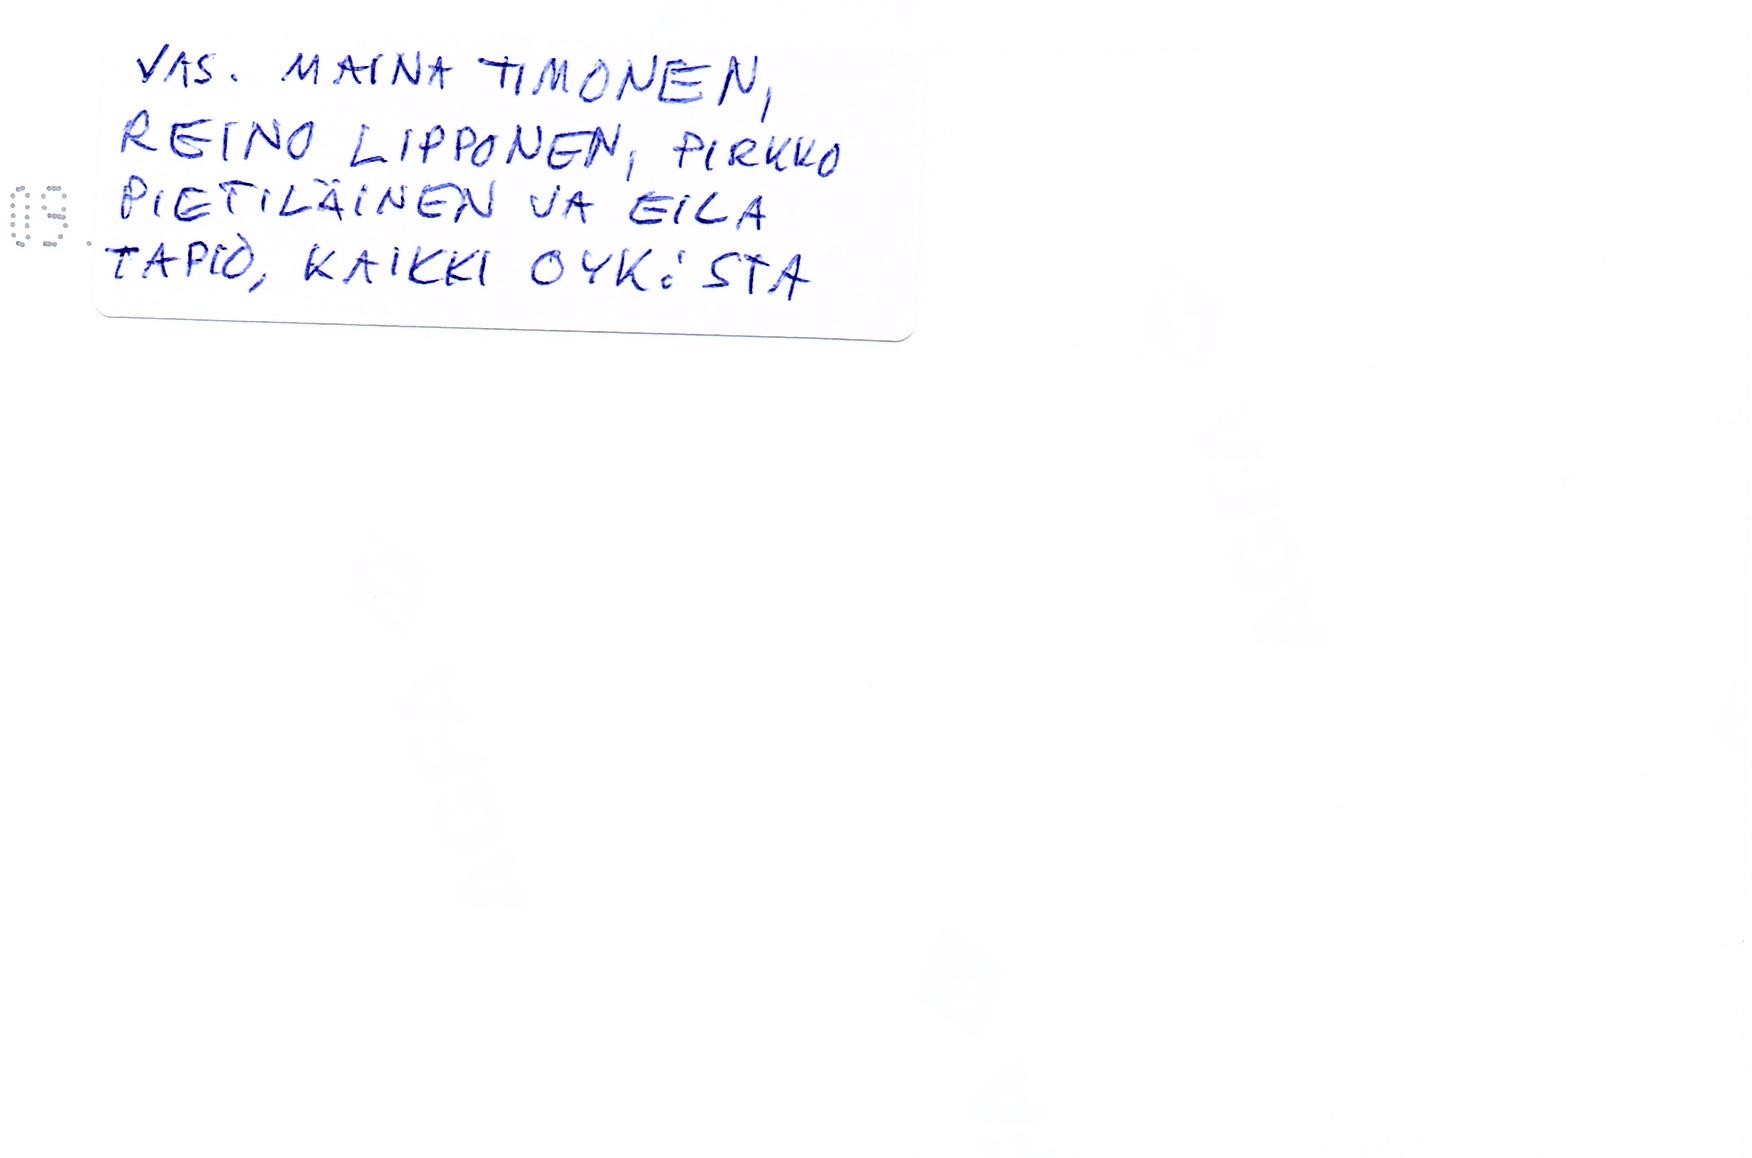 VAS. MAINA TIMONEN,
REINO LIPPONEN, PIRKKO
PIETILÄINEN JA EILA
TAPIO, KAIKKI OYK:STA